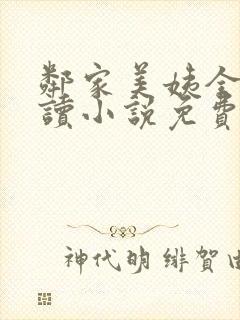 鄰家美姨全
讀小說免費
神代明 緋賀由